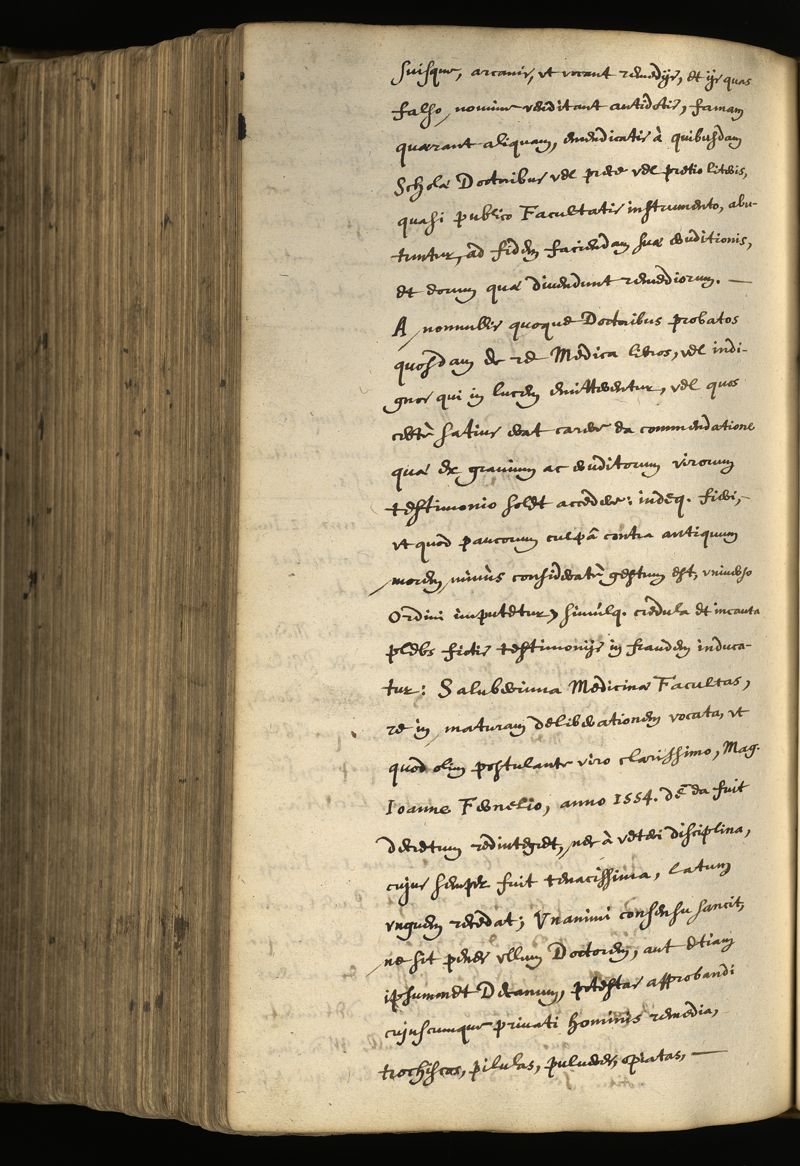 suisque, arcanis, vt vocant remedijs, et ijs quas
falso nomine venditant antidotis, famam
quærant aliquam, emendicatis à quibusdam
Scholæ Doctoribus vel prece vel pretio literis,
quasi publico Facultatis instrumento, abu-
tuntur, ad fidem faciendam suæ eruditionis,
et eorum quæ divendunt remediorum. —
A nonnullis quoque Doctoribus probatos
quosdam de re Medica libros, vel indi-
gnos qui in lucem emitterentur, vel quos
certè satius erat carere ea commendatione
quæ ex gravium ac eruditorum virorum
testimonio solet accedere: indeq. fieri,
vt quod paucorum culpâ contra antiquum
morem minùs consideratè gestum est, vniverso
Ordini imputetur, simúlq. credula et incauta
plebs fictis testimonijs in fraudem induca-
tur: Saluberrima Medicinæ Facultas,
re in maturam deliberationem vocata, vt
quod olim postulante viro clarissimo, Mag.
Ioanne Fernelio, anno 1554. de ea fuit
decretum redintegret, nec à veteri disciplina,
cujus semper fuit tenacissima, latum
vnguem recedat; Vnanimi consensu sancit,
ne sit penes vllum Doctorem, aut etiam
ipsummet Decanum, potestas approbandi
cujuscumque privati hominis remedia,
trochiscos, pilulas, pulveres, opiatas, —